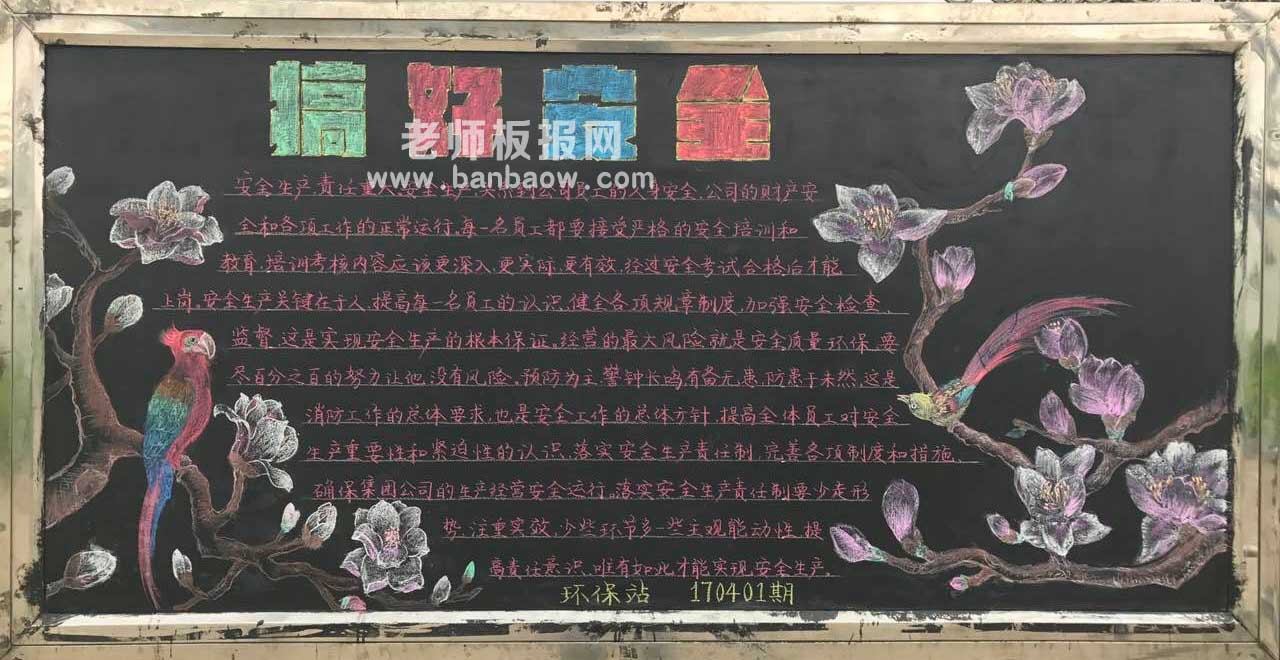 搞好安全
老师板报网
www.banbaow.com
安全生产责任重大安全生产关系到公司员工的人身安全、公司的财产安
全和各项工作的正常运行。每一名员工都要接受严格的安全培训和
教育,培训考核内容应该更深入、更实际、更有效、经过安全考试合格后才能
上岗。安全生产关键在于人、提高每一名员工的认识、健全各项规章制度、加强安全检查、
监督、这是实现安全生产的根本保证。经营的最大风险就是安全质量环保、要
尽百分之百的努力让他没有风险。预防为主、警钟长鸣、有备无患、防患于未然、这是
消防工作的总体要求、也是安全工作的总体方针、提高全体员工对安全
生产重要性和紧迫性的认识、落实安全生产责任制、完善各项制度和措施、
确保集团公司的生产经营安全运行。落实安全生产责任制要少走形
势、注重实效、少些环节多一些主观能动性、提
高责任意识、唯有如此才能实现安全生产。
环保站 170401期